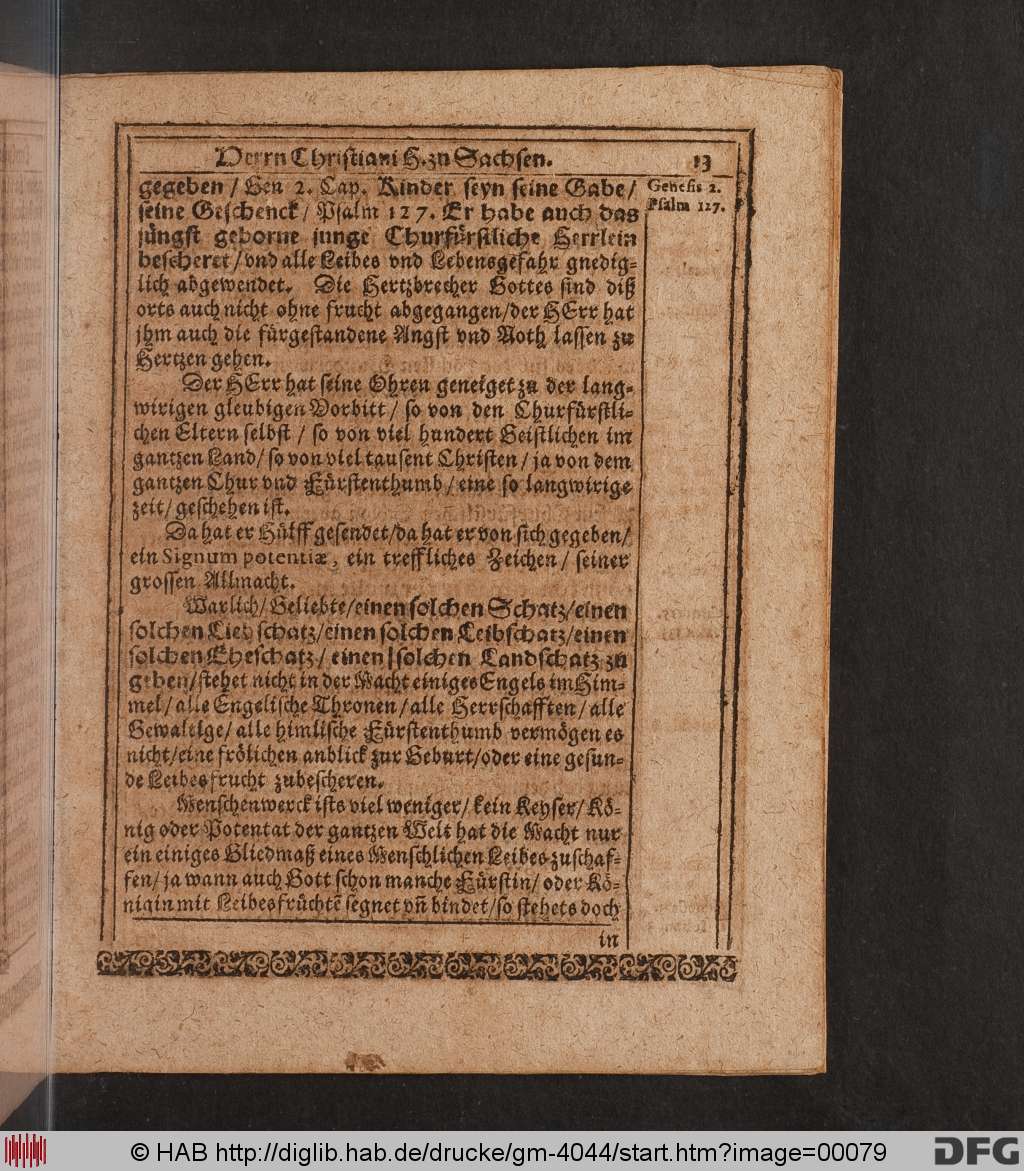 Herrn Christiani H. zu Sachsen. 13
gegeben / Gen 2. Cap. Kinder seyn seine Gabe /
Genesis 2.
seine Geschenck / Psalm 127. Er habe auch das
Psalm 127.
jüngst geborne junge Churfürstliche Herrlein
bescheret / vnd alle Leibes vnd Lebensgefahr gnedig=
lich abgewendet. Die Hertzbrecher Gottes sind diß
orts auch nicht ohne frucht abgegangen / der HErr hat
jhm auch die fürgestandene Angst vnd Noth lassen zu
Hertzen gehen.
Der HErr hat seine Ohren geneiget zu der lang=
wirigen gleubigen Vorbitt / so von den Churfürstli=
chen Eltern selbst / so von viel hundert Geistlichen im
gantzen Land / so von viel tausent Christen / ja von dem
gantzen Chur vnd Fürstenthumb / eine so langwirige
zeit / geschehen ist.
Da hat er Hülff gesendet / da hat er von sich gegeben /
ein Signum potentiæ, ein treffliches Zeichen / seiner
grossen Allmacht.
Warlich / Geliebte / einen solchen Schatz / einen
solchen Liebschatz / einen solchen Leibschatz / einen
solchen Eheschatz / einen solchen Landschatz zu
geben / stehet nicht in der Macht einiges Engels im Him=
mel / alle Engelische Thronen / alle Herrschafften / alle
Gewaltige / alle himlische Fürstenthumb vermögen es
nicht / eine frölichen anblick zur Geburt / oder eine gesun=
de Leibesfrucht zubescheren.
Menschenwerck ists viel weniger / kein Keyser / Kö=
nig oder Potentat der gantzen Welt hat die Macht nur
ein einiges Gliedmaß eines Menschlichen Leibes zuschaf=
fen / ja wann auch Gott schon manche Fürstin / oder Kö=
nigin mit Leibesfrüchtē segnet vn̄ bindet / so stehets doch
in
© HAB http://diglib.hab.de/drucke/gm-4044/start.htm?image=00079
DFG